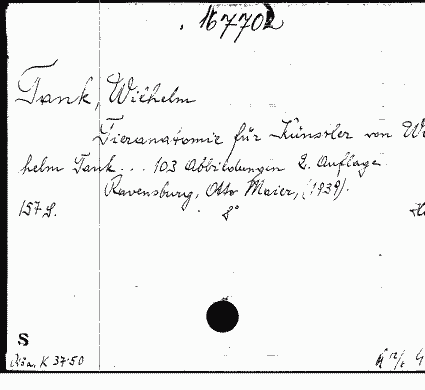 167702
Tank, Wilhelm
Tieranatomie für Künstler von Wi
helm Tank... 103 Abbildungen 2. Auflage
Ravensburg, Otto Maier, (1939).
157 S. 8°
S
K 3750